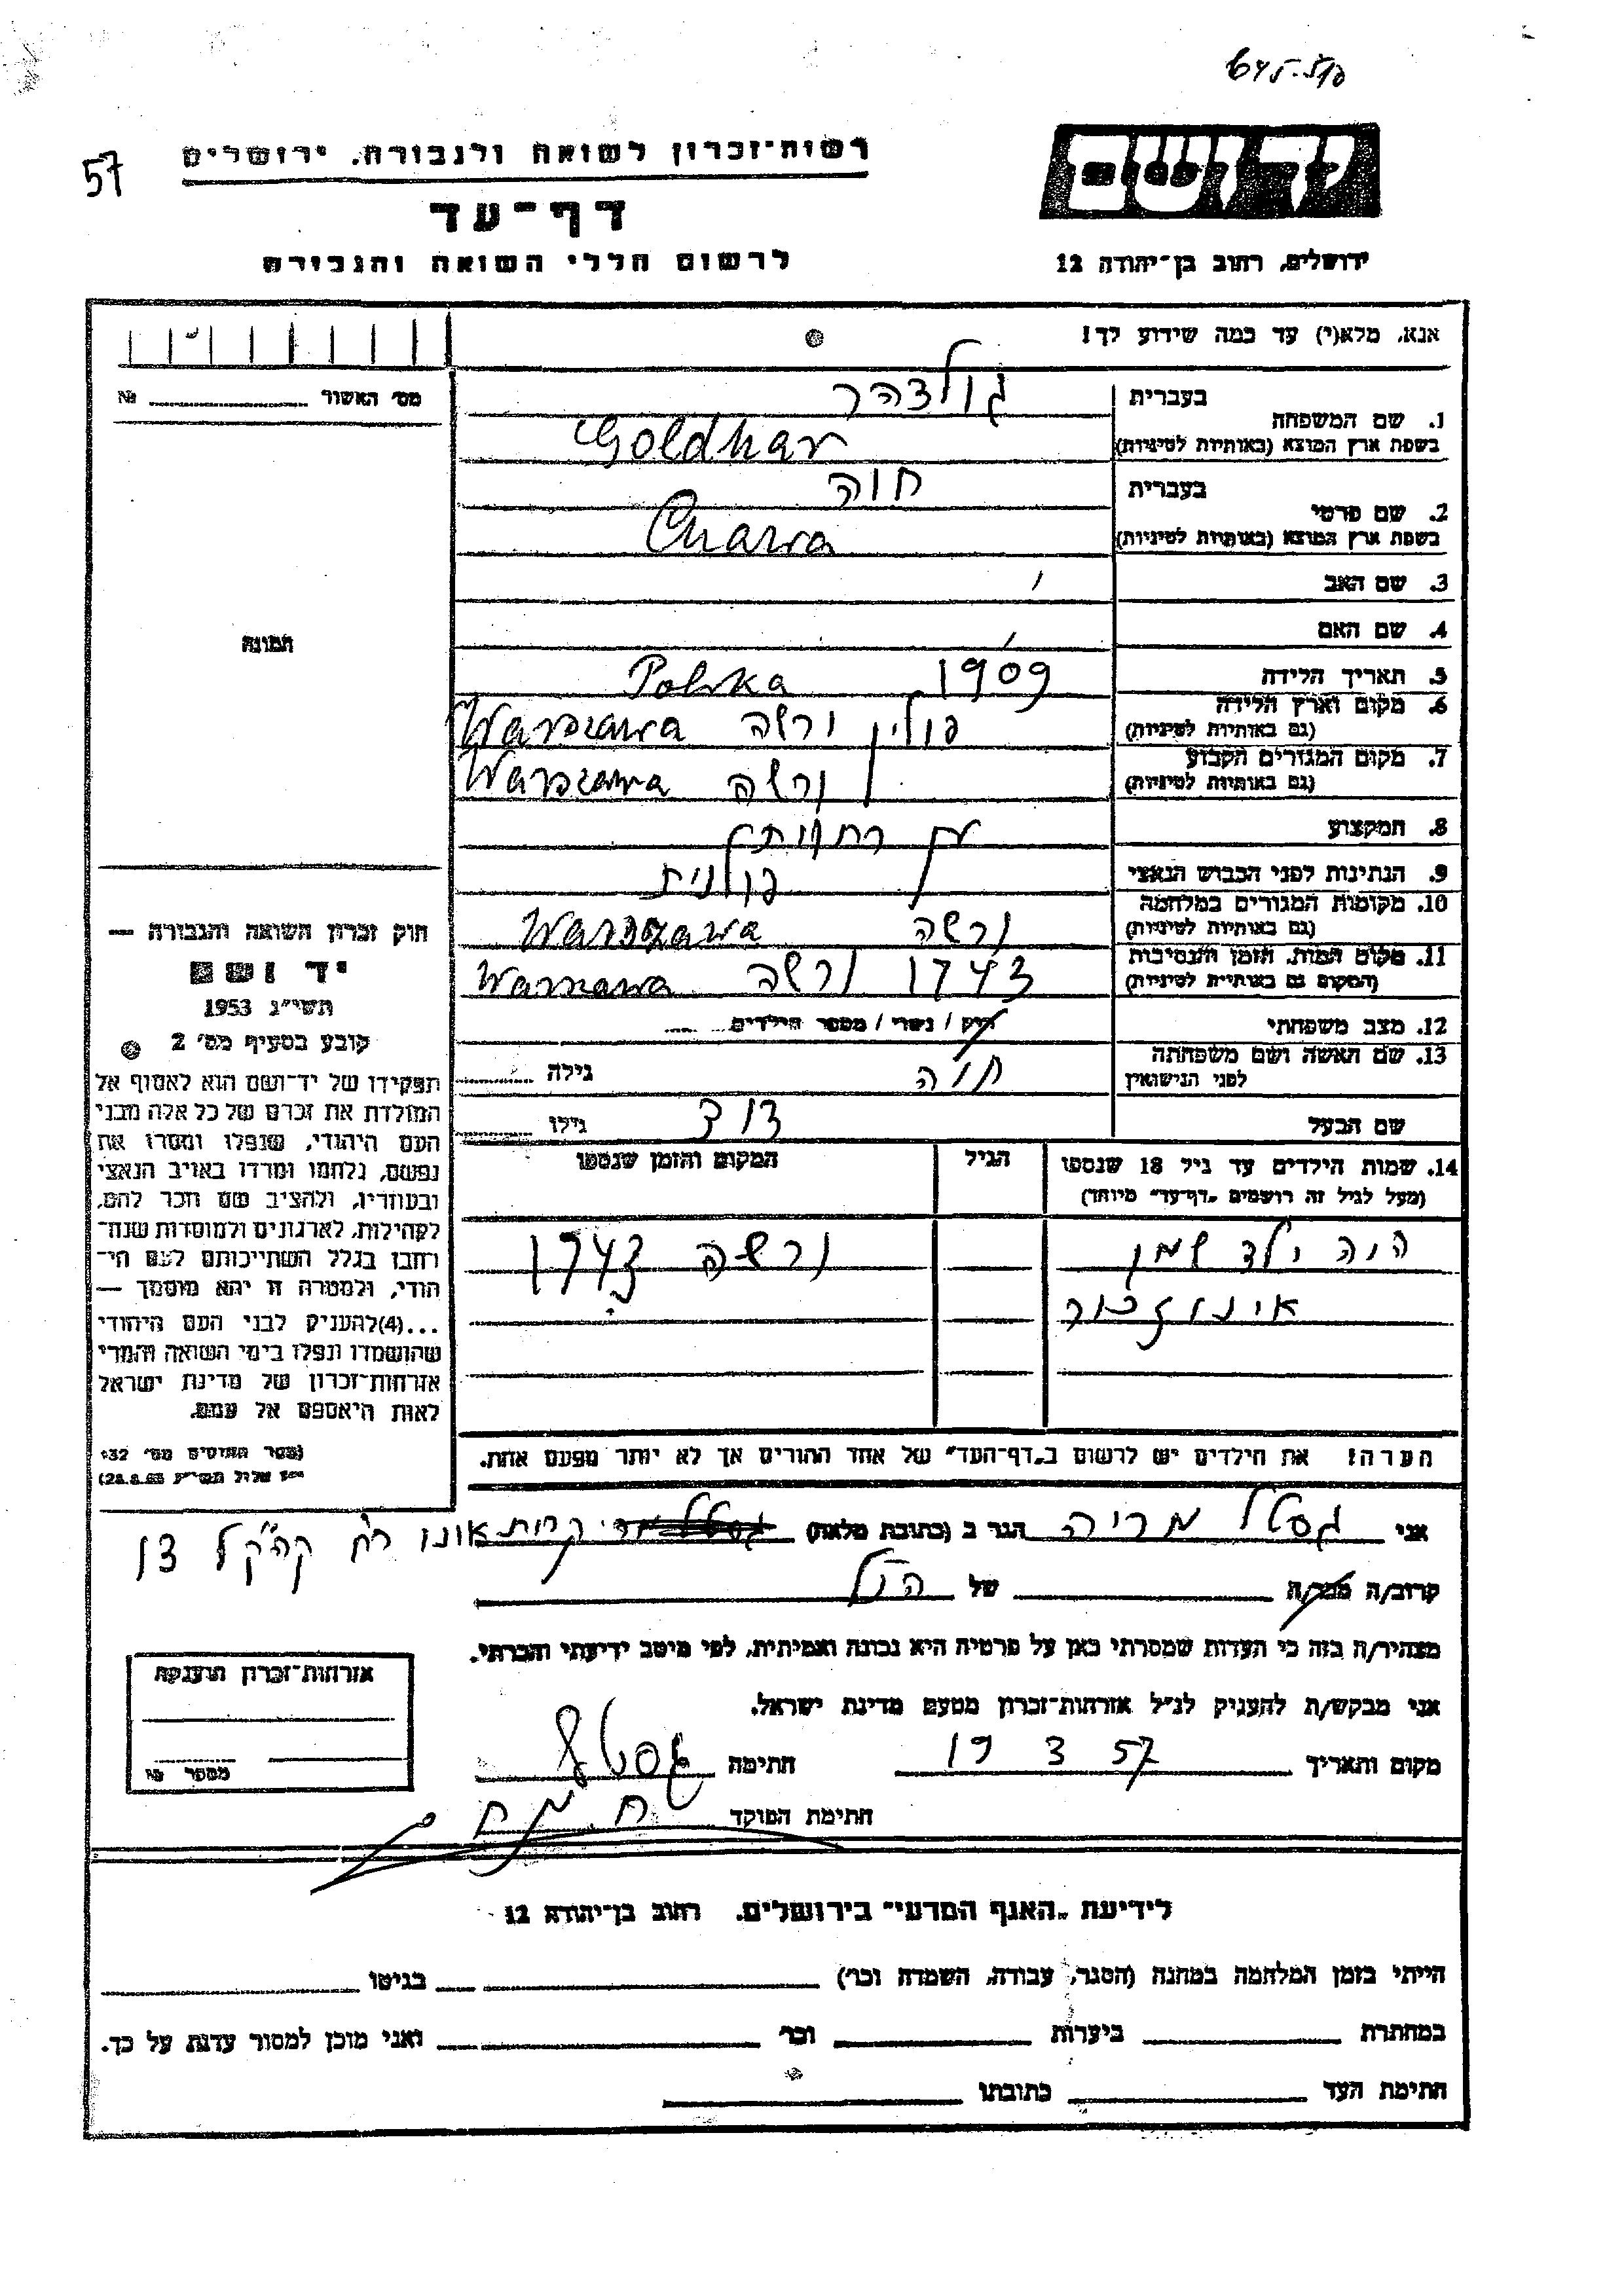 645.510
57
רשות־זכרון לשואה ולגבורה, ירושלים
יד ושם
דף־עד
לרשום חללי השואה והגבורה
ירושלים, רחוב בן־יהודה 12
אנא, מלא(י) עד כמה שידוע לך!
מס' האשור № 
1. שם המשפחה
בעברית גולדהר
בשפת ארץ המוצא (באותיות לטיניות) Goldhar
2. שם פרטי
בעברית חוה
בשפת ארץ המוצא (באותיות לטיניות) Chawa
3. שם האב
4. שם האם
תמונה
5. תאריך הלידה 1909 Polska
6. מקום וארץ הלידה (גם באותיות לטיניות) פולין ורשה Warszawa
7. מקום המגורים הקבוע (גם באותיות לטיניות) ורשה Warszawa
8. המקצוע
9. הנתינות לפני הכבוש הנאצי פולנית
10. מקומות המגורים במלחמה (גם באותיות לטיניות) ורשה Warszawa
11. מקום המות, הזמן והנסיבות (המקום גם באותיות לטיניות) 1943 ורשה Warszawa
12. מצב משפחתי רוק / נשוי / מספר הילדים
13. שם האשה ושם משפחתה לפני הנישואין חוה גילה
שם הבעל דוד גילו
14. שמות הילדים עד גיל 18 שנספו (מעל לגיל זה רושמים „דף־עד״ מיוחד)
הגיל
המקום והזמן שנספו
היה ילד שמו ורשה 1943
אינו זכור
הערה! את הילדים יש לרשום ב„דף־העד״ של אחד ההורים אך לא יותר מפעם אחת.
חוק זכרון השואה והגבורה —
יד ושם
תשי״ג 1953
קובע בסעיף מס' 2
תפקידו של יד־ושם הוא לאסוף אל
המולדת את זכרם של כל אלה מבני
העם היהודי, שנפלו ומסרו את
נפשם, נלחמו ומרדו באויב הנאצי
ובעוזריו, ולהציב שם וזכר להם,
לקהילות, לארגונים ולמוסדות שנח־
רבו בגלל השתייכותם לעם הי־
הודי, ולמטרה זו יהא מוסמך —
...(4) להעניק לבני העם היהודי
שהושמדו ונפלו בימי השואה והמרי
אזרחות־זכרון של מדינת ישראל
לאות היאספם אל עמם.
(ספר החוקים מס' 132
אני גסטל מריה הגר ב (כתובת מלאה) קרית אונו רח קהקל
קרוב/ה מכר/ה של הנ״ל
מצהיר/ה בזה כי העדות שמסרתי כאן על פרטיה היא נכונה ואמיתית, לפי מיטב ידיעתי והכרתי.
אני מבקש/ת להעניק לנ״ל אזרחות־זכרון מטעם מדינת ישראל.
מקום ותאריך 19 3 57 חתימה
חתימת הפוקד
אזרחות־זכרון הוענקה
מספר №
לידיעת „האגף המדעי״ בירושלים. רחוב בן־יהודה 12
הייתי בזמן המלחמה במחנה (הסגר, עבודה, השמדה וכו') בגיטו
במחתרת ביערות וכו' ואני מוכן למסור עדות על כך.
חתימת העד כתובתו